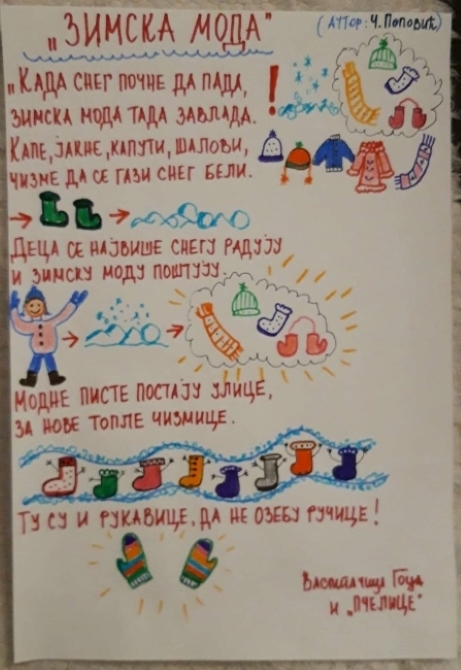 „ЗИМСКА МОДА"
(АУТОР: Ч. ПОПОВИЋ)
„КАДА СНЕГ ПОЧНЕ ДА ПАДА,
ЗИМСКА МОДА ТАДА ЗАВЛАДА.
КАПЕ, ЈАКНЕ, КАПУТИ, ШАЛОВИ,
ЧИЗМЕ ДА СЕ ГАЗИ СНЕГ БЕЛИ.
ДЕЦА СЕ НАЈВИШЕ СНЕГУ РАДУЈУ
И ЗИМСКУ МОДУ ПОШТУЈУ.
МОДНЕ ПИСТЕ ПОСТАЈУ УЛИЦЕ,
ЗА НОВЕ ТОПЛЕ ЧИЗМИЦЕ.
ТУ СУ И РУКАВИЦЕ, ДА НЕ ОЗЕБУ РУЧИЦЕ!
Васпитачица Гоца
и „ПЧЕЛИЦЕ"